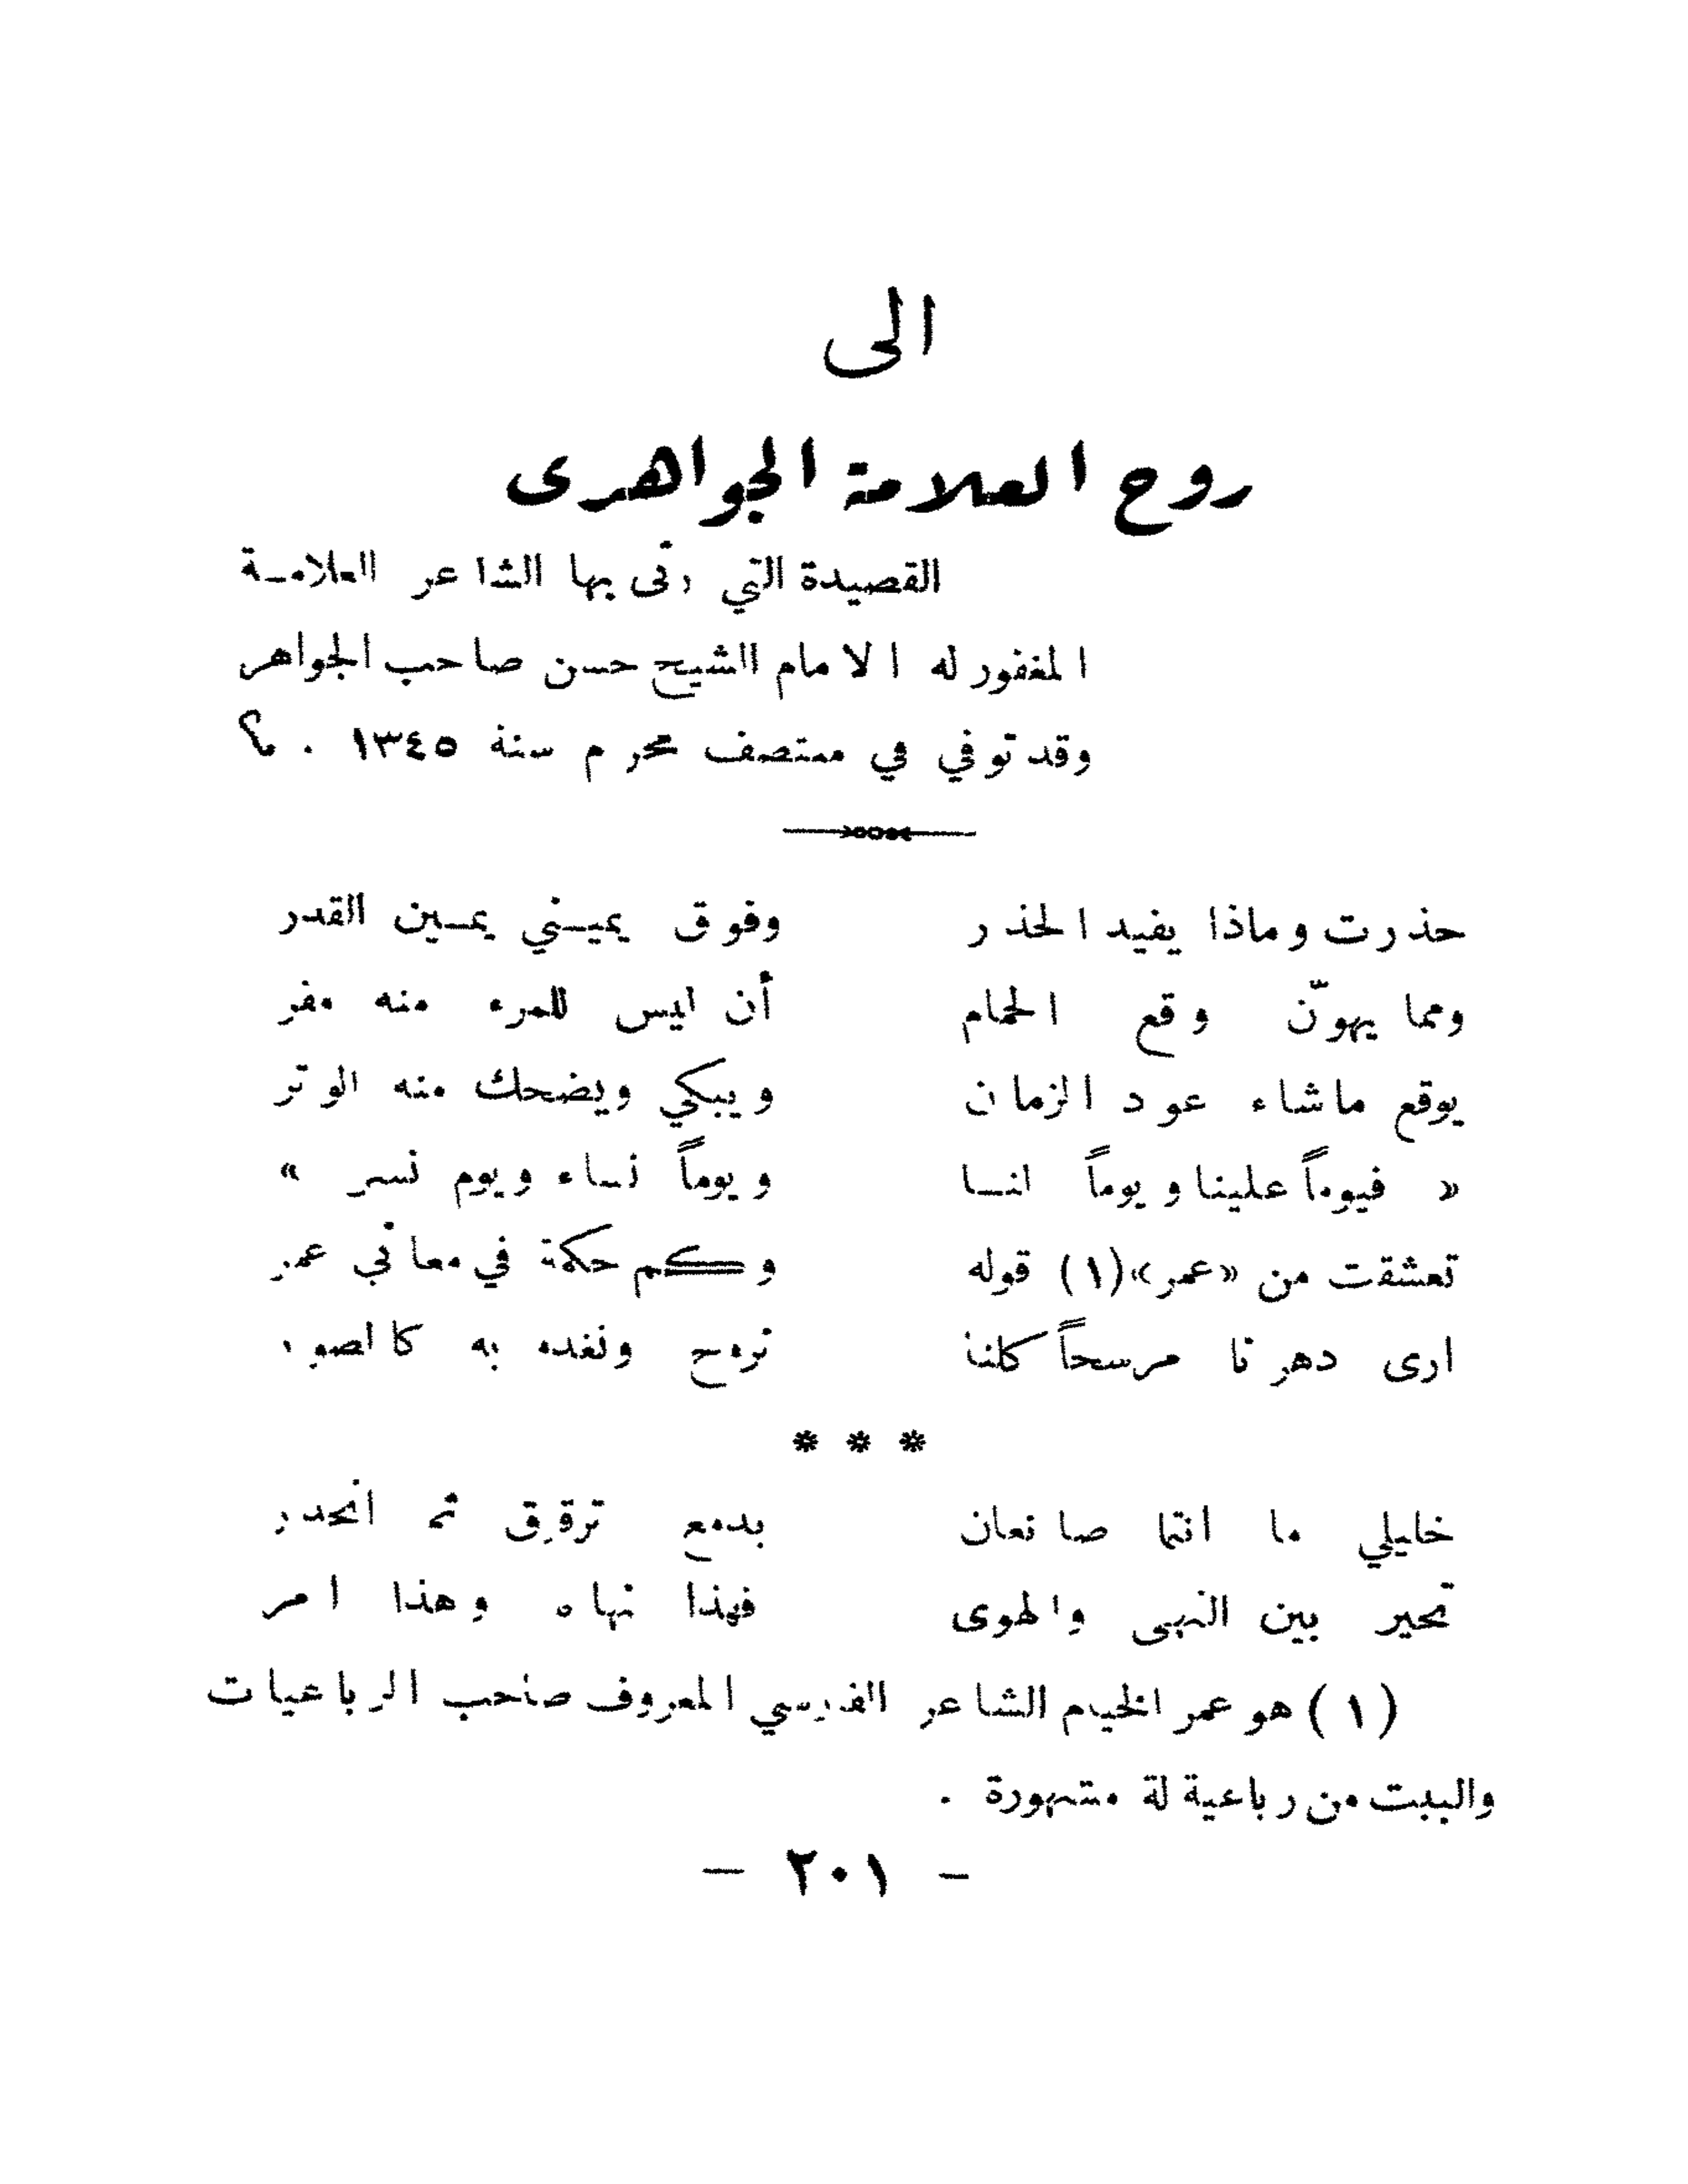 الى
روح العلامة الجواهرى
القصيدة التي رثى بها الشاعر العلامـة
المغفور له الامام الشيخ حسن صاحب الجواهر
وقد توفي في منتصف محرم سنة ١٣٤٥ .
حذرت وماذا يفيد الحذر وفوق يميـني يمـين القدر
ومما يهوّن وقع الحمام أن ليس للمرء منه مفر
يوقع ماشاء عود الزمان ويبكي ويضحك منه الوتر
« فيوماً علينا ويوماً لنـا ويوماً نساء ويوم نسر »
تعشقت من «عمر»(١) قوله وكم حكمة في معاني عمر
ارى دهرنا مرسحاً كلنا نروح ونغدو به كالصور
* * *
خليلي ما انتما صانعان بدمع ترقرق ثم انحدر
تحير بين النهى والهوى فهذا نهاه وهذا امر
(١) هو عمر الخيام الشاعر الفارسي المعروف صاحب الرباعيات
والبيت من رباعية لة مشهورة .
- ٢٠١ -